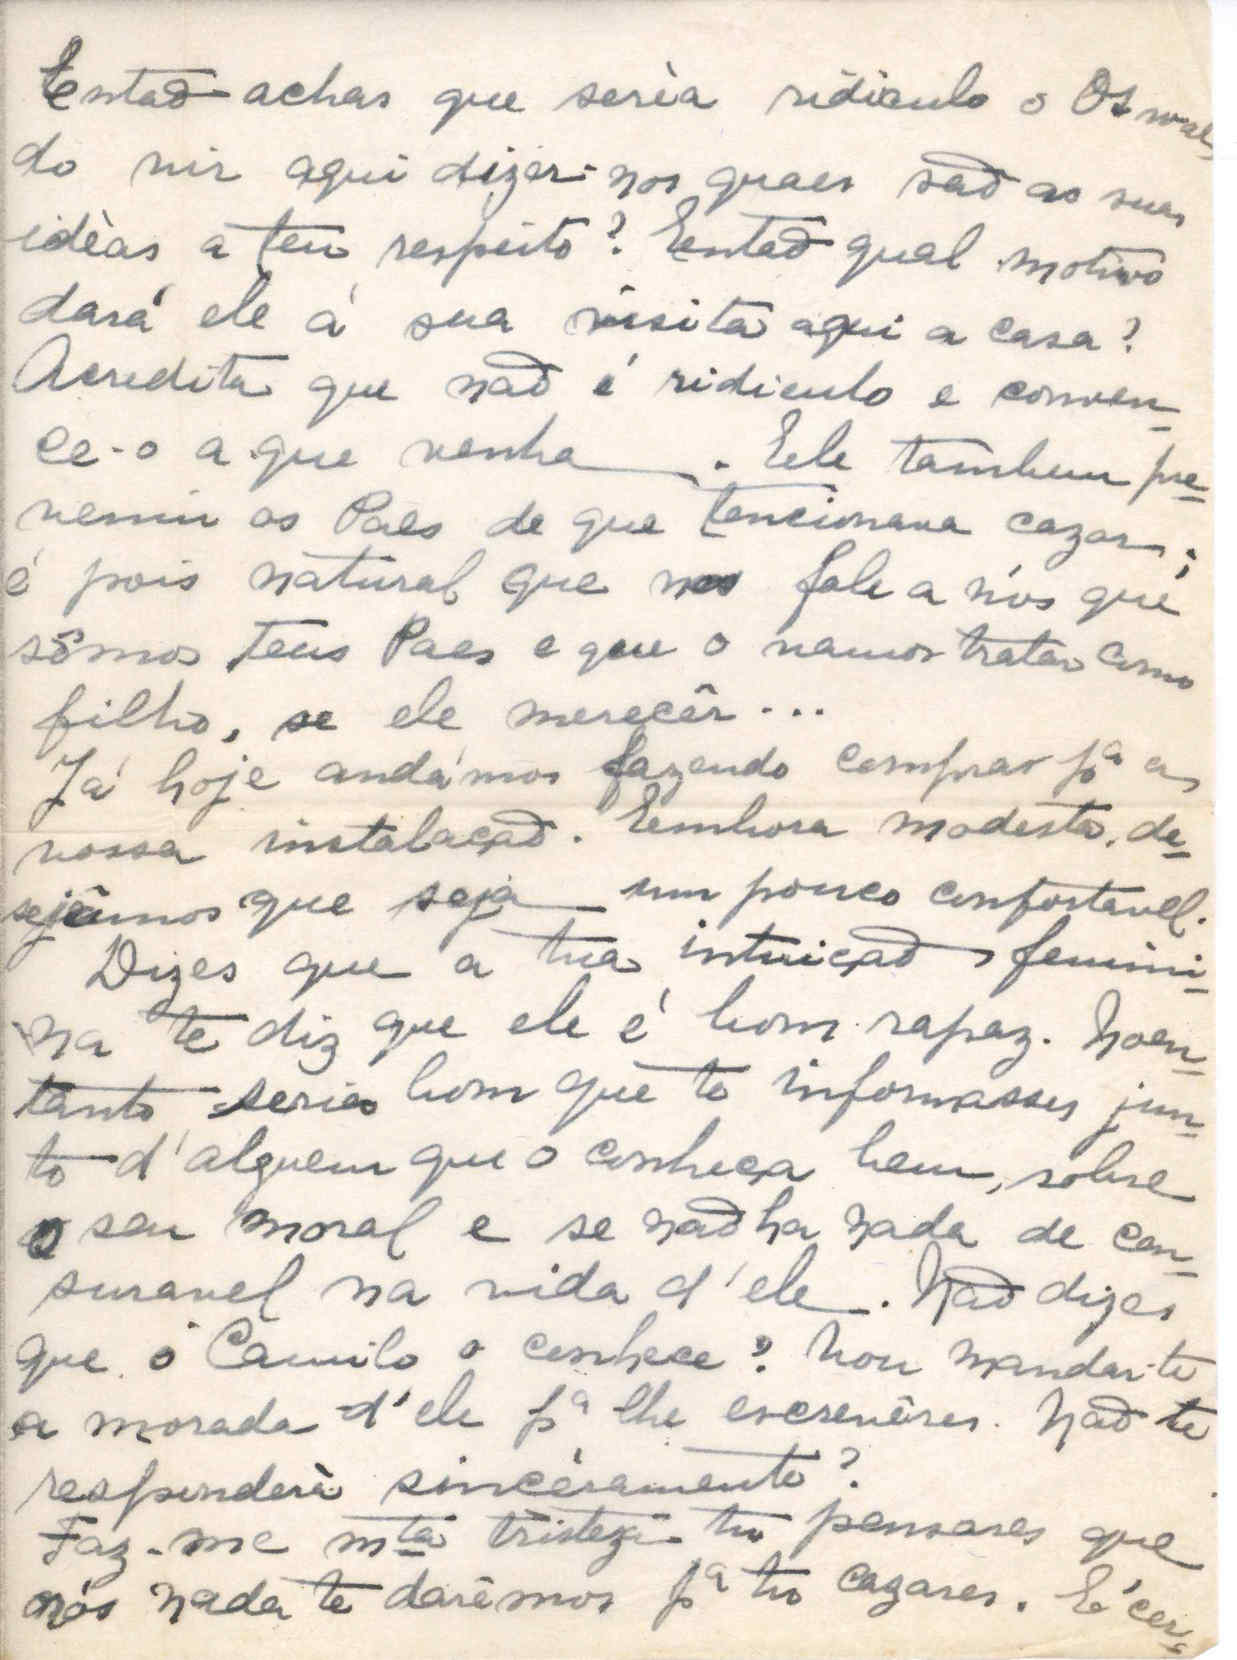 Entaõ achas que serìa ridiculo o Oswal
do vir aqui dizer-nos quaes saõ as suas
idèas a teu respeito? Entaõ qual motivo
dará ele á sua visita aqui a casa?
Acredita que naõ é ridiculo e conven-
ce-o a que venha. Ele tambem pre-
veniu os Paes de que tencionava cazar;
é pois natural que nos fale a nós que
sômos teus Paes e que o vamos tratar como
filho, se ele merecêr...
Já hoje andámos fazendo compras pª a
vossa instalaçaõ. Embora modesta, de-
sejâmos que seja um pouco confortavel.
Dizes que a tua intuiçaõ femini-
na te diz que ele é bom rapaz. Noen-
tanto seria bom que te informasses jun-
to d'alguem que o conheça bem, sobre
o seu moral e se naõ ha nada de cen-
suravel na vida d'ele. Naõ dizes
que o Camilo o conhece? Vou mandar-te
a morada d'ele pª lhe escrevêres. Naõ te
responderà sincèramente?
Faz-me mta tristeza tu pensares que
nós nada te darêmos pª tu cazares. É cer-